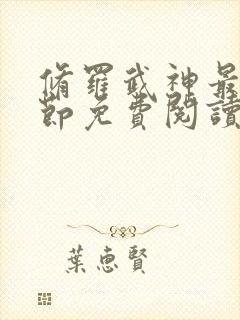 脩羅武神最
節免費閱讀
葉惠賢